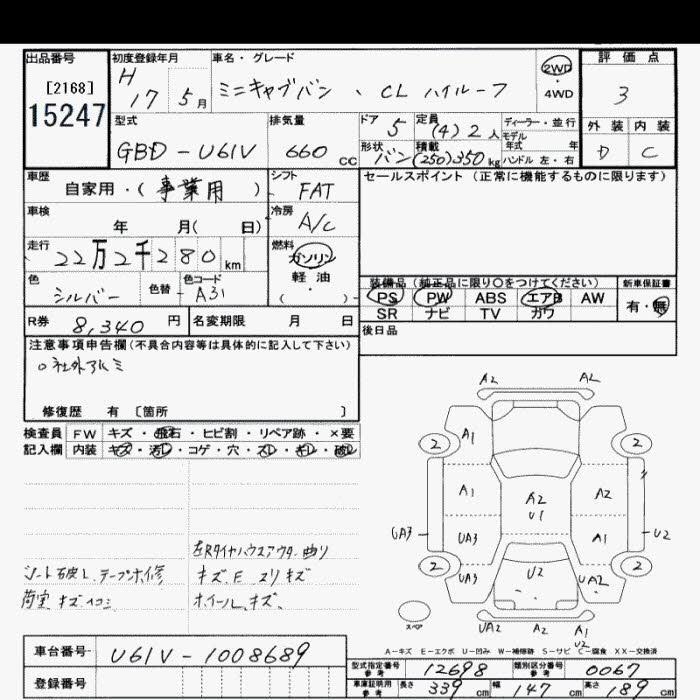 出品番号
[2168]
15247
初度登録年月
H 17 5月
車名・グレード
ミニキャブバン 、 CL ハイルーフ
2WD
・
4WD
評価点
3
外装 内装
D C
型式
GBD-U61V
排気量
660 cc
ドア 5
定員 (4) 2 人
ディーラー・並行
モデル
年式 年
形状 バン
積載 (250)350kg
ハンドル 左・右
車歴
自家用・(事業用)
シフト
FAT
セールスポイント(正常に機能するものに限ります)
車検
年 月( 日)
冷房
A/C
走行
22万2千280km
燃料
ガソリン
軽油
・
( )
色
シルバー
色替
色コード
A31
装備品(純正品に限り○をつけてください)
PS PW ABS エアB AW
SR ナビ TV カワ
新車保証書
有・無
R券 8,340 円
名変期限 月 日
後日品
注意事項申告欄(不具合内容等は具体的に記入して下さい)
○社外アルミ
修復歴 有 〔箇所 〕
検査員 FW キズ・飛石・ヒビ割・リペア跡・×要
記入欄 内装 キズ・汚レ・コゲ・穴・スレ・キレ・破レ
左Rタイヤハウスアウター曲り
シート破レ、テープ補修
キズ、E スリキズ
荷室 キズヘコミ
ホイール、キズ、
A2 A2
2 A1 2
A1 A2 A2
U1
UA3 UA3 A1 U2
2 UA3 U2 UA2 2
スペア
UA2 A2 A1
U2
A-キズ E-エクボ U-凹み W-補修跡 S-サビ C-腐食 XX-交換済
車台番号 U61V-1008689
登録番号
型式指定番号
参考
12698
類別区分番号
参考
0067
車庫証明用
参考
長さ 339 cm 幅 147 cm 高さ 189 cm